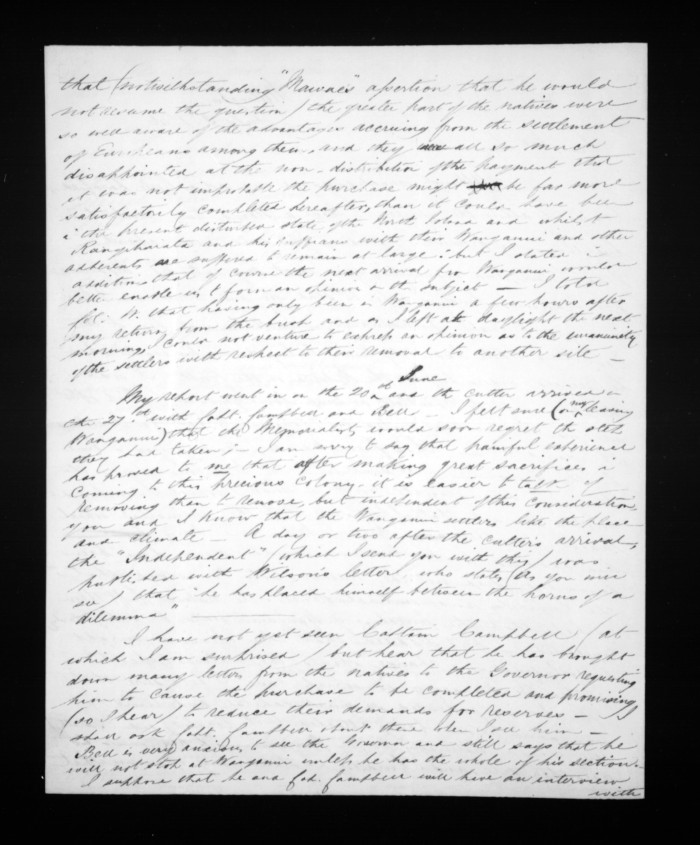 that (notwithstanding "Mawae's" assertion that he would
not resume the question) the greater part of the natives were
so well aware of the advantages accruing from the settlement
of Europeans among them, and they all so much
disappointed at the non-distribution of the payment that
it was not improbable the purchase might be far more
satisfactorily completed hereafter, than it could have been
i the present disturbed state of the North Island and whilst
Rangihaeata and his ruffians with their Wanganui and other
adherents are suffered to remain at large: but I stated i
addition that of course the next arrival from Wanganui would
better enable us to form an opinion on the subject — I told
that having only been in Wanganui a few hours after
my return from the bush and as I left at daylight the next
morning, I could not venture to express an opinion as to the unanimity
of the settlers with respect to their removal to another site —
My report went in on the 20th June and the cutter arrived on
the 27th with Capt. Campbell and Bell — I felt sure (on my leaving
Wanganui) that the Memorialists would soon regret the step
they had taken; — I am sorry to say that painful experience
has proved to me that after making great sacrifices i
coming to this precious Colony, it is easier to talk of
removing than to remove, but independent of this consideration
you and I know that the Wanganui settlers like the place
and climate — A day or two after the cutter's arrival,
the "Independent" (which I send you with this) was
published with Wilson's letter, who states (as you will
see) that "he has placed himself between the horns of a
dilemma"
I have not yet seen Captain Campbell (at
which I am surprised) but hear that he has brought
down many letters from the natives to the Governor requesting
him to cause the purchase to be completed and promising
(so I hear) to reduce their demands for reserves —
shall ask Capt. Campbell about them when I see him —
Bell is very anxious to see the Governor and still says that he
will not stop at Wanganui unless he has the whole of his section.
I suppose that he and Capt. Campbell will have an interview
with